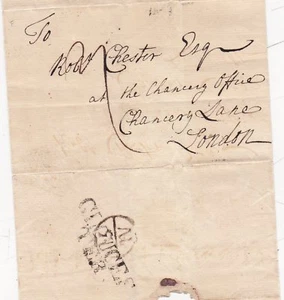 To
Robt Chester Esqr
at the Chancery Office
Chancery Lane
London